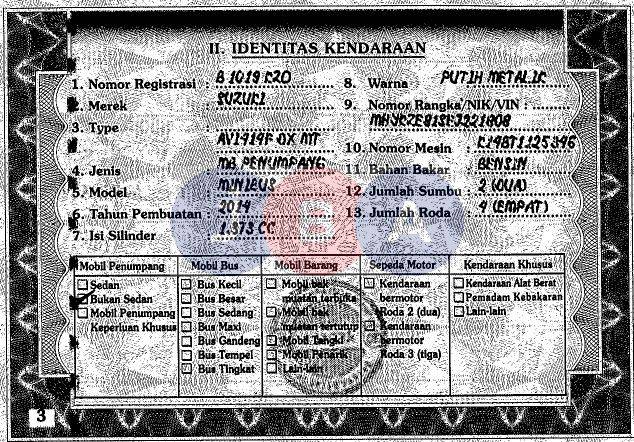 II. IDENTITAS KENDARAAN
1. Nomor Registrasi : B 1019 CZO
2. Merek : SUZUKI
3. Type :
AV1414F DX MT
4. Jenis : MB PENUMPANG
5. Model : MINIBUS
6. Tahun Pembuatan : 2014
7. Isi Silinder : 1.373 CC
8. Warna : PUTIH METALIK
9. Nomor Rangka/NIK/VIN :
10. Nomor Mesin :
11. Bahan Bakar : BENSIN
12. Jumlah Sumbu : 2 (DUA)
13. Jumlah Roda : 4 (EMPAT)
BBA
Mobil Penumpang
Sedan
Bukan Sedan
Mobil Penumpang
Keperluan Khusus
Mobil Bus
Bus Kecil
Bus Besar
Bus Sedang
Bus Maxi
Bus Gandeng
Bus Tempel
Bus Tingkat
Mobil Barang
Mobil bak
muatan terbuka
Mobil bak
muatan tertutup
Mobil Tangki
Mobil Penarik
Lain-lain
Sepeda Motor
Kendaraan
bermotor
Roda 2 (dua)
Kendaraan
bermotor
Roda 3 (tiga)
Kendaraan Khusus
Kendaraan Alat Berat
Pemadam Kebakaran
Lain-lain
3